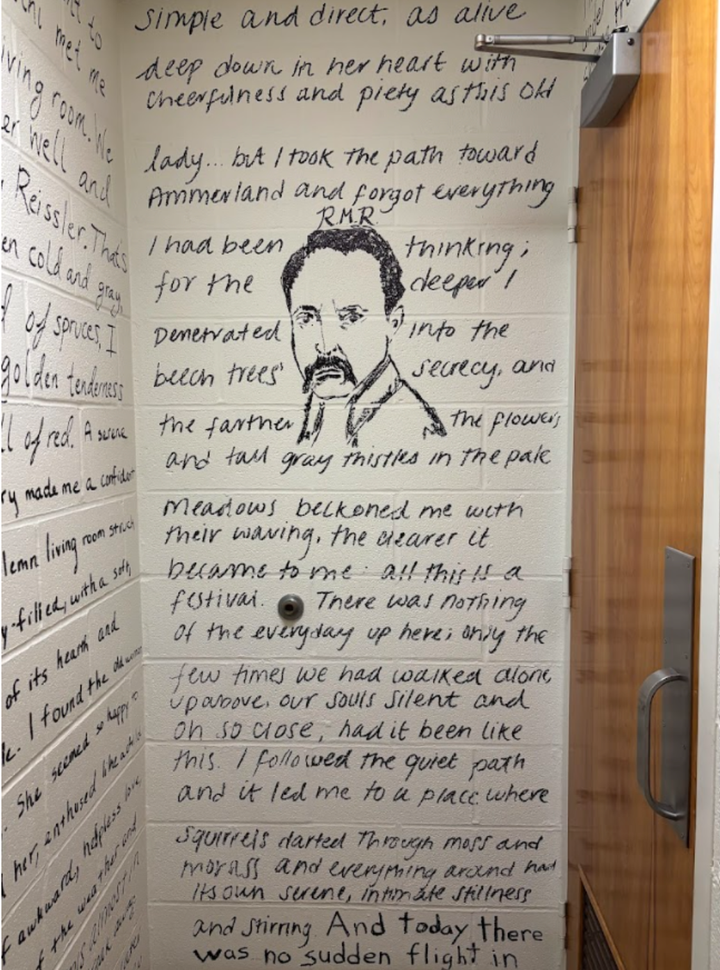 t to
met me
living room. We
er well and
Reissler. Thats
en cold and gray,
of spruces, I
golden tenderness
ll of red. A serene
ry made me a confidant
lemn living room struck
y-filled, with a soft,
of its hearth and
I found the
She seemed so happy to
her, enthused like a
f awkward, helpless love,
f the weather and
simple and direct, as alive
deep down in her heart with
cheerfulness and piety as this old
lady... but I took the path toward
Ammerland and forgot everything
R.M.R.
I had been thinking;
for the deeper I
penetrated into the
beech trees' secrecy, and
the farther the flowers
and tall gray thistles in the pale
meadows beckoned me with
their waving, the clearer it
became to me: all this is a
festival. There was nothing
of the everyday up here; only the
few times we had walked alone
up above, our souls silent and
oh so close, had it been like
this. I followed the quiet path
and it led me to a place where
squirrels darted through moss and
morass and everything around had
its own serene, intimate stillness
and stirring. And today there
was no sudden flight in